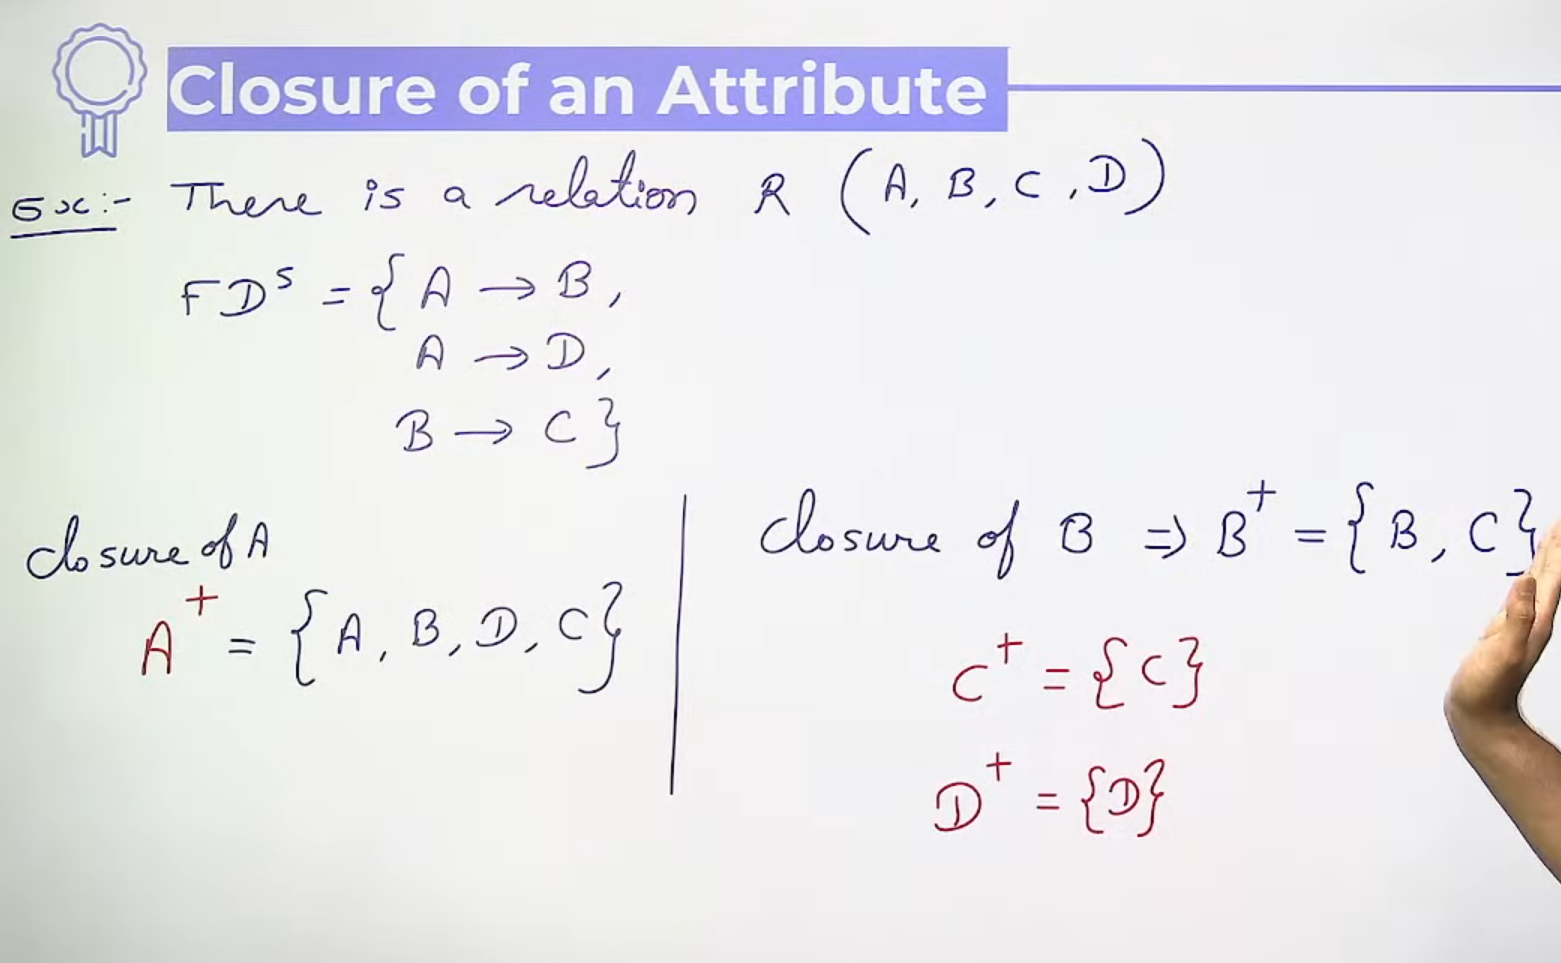 Closure of an Attribute
Ex:- There is a relation R (A, B, C, D)
FDˢ = {A → B,
A → D,
B → C}
closure of A
A⁺ = {A, B, D, C}
closure of B ⇒ B⁺ = {B, C}
C⁺ = {C}
D⁺ = {D}